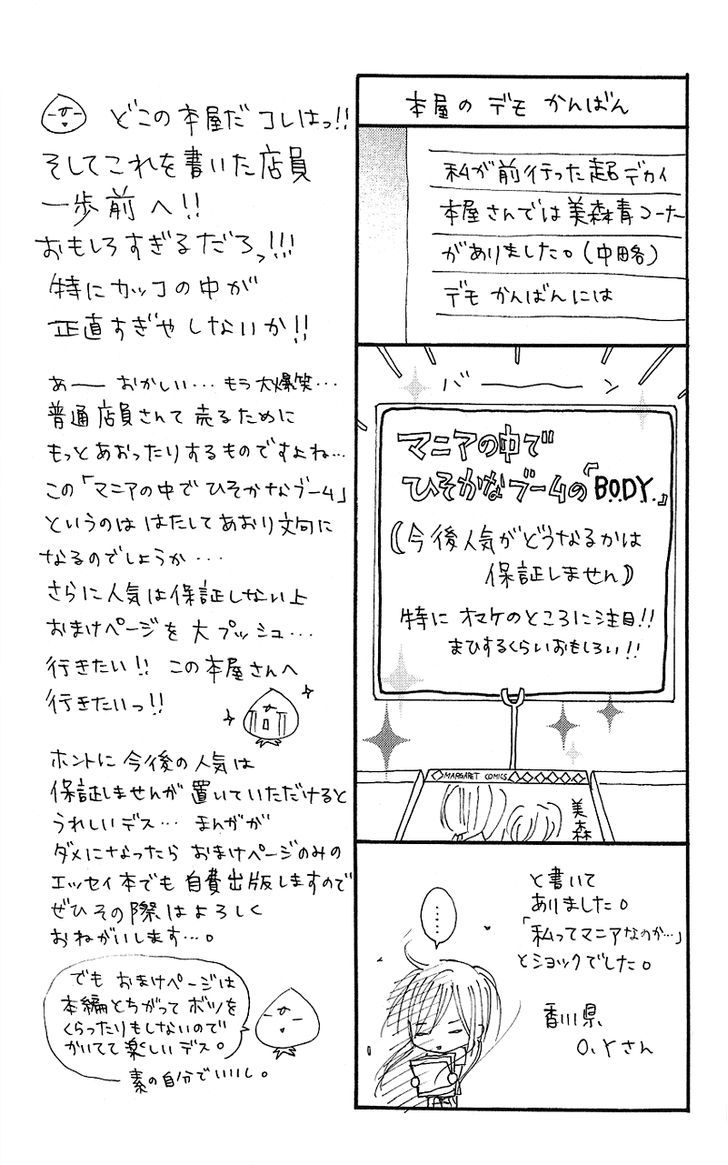 本屋の デモ かんばん
私が前行った超デカイ
本屋さんでは美森青コーナー
がありました。(中略)
デモ かんばんには
バーーン
マニアの中で
ひそかなブームの「BODY.」
(今後人気がどうなるかは
保証しません)
特に オマケのところに注目!!
まひするくらいおもしろい!!
MARGARET COMICS
美森
……
と書いて
ありました。
「私ってマニアなのか…」
とショックでした。
香川県
O.Yさん
どこの本屋だ コレはっ!!
そしてこれを書いた店員
一歩前へ!!
おもしろすぎるだろっ!!!
特にカッコの中が
正直すぎやしないか!!
あー おかしい… もう大爆笑…
普通店員さんて 売るために
もっとあおったりするものですよね…
この「マニアの中で ひそかなブーム」
というのは はたしてあおり文句に
なるのでしょうか…
さらに人気は保証しない上
おまけページを 大プッシュ…
行きたい!! この本屋さんへ
行きたいっ!!
ホントに 今後の人気は
保証しませんが 置いていただけると
うれしいデス… まんがが
ダメになったら おまけページのみの
エッセイ本でも 自費出版しますので
ぜひその際はよろしく
おねがいします…。
でも おまけページは
本編とちがって ボツを
くらったりもしないので
かいてて楽しいデス。
素の自分でいいし。